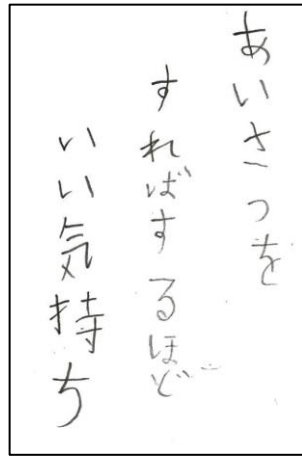 あいさつを
すればするほど
いい気持ち